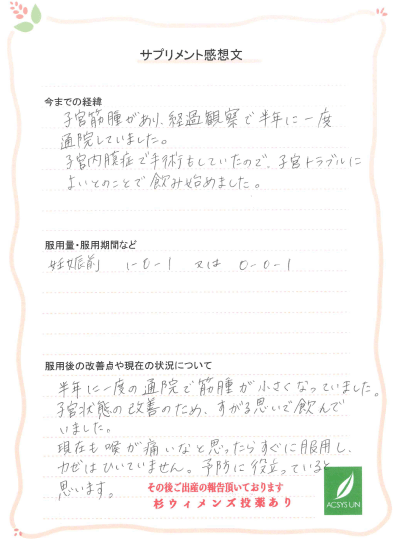 サプリメント感想文
今までの経緯
子宮筋腫があり、経過観察で半年に一度
通院していました。
子宮内膜症で手術もしていたので、子宮トラブルに
よいとのことで飲み始めました。
服用量・服用期間など
妊娠前 1-0-1 又は 0-0-1
服用後の改善点や現在の状況について
半年に一度の通院で筋腫が小さくなっていました。
子宮状態の改善のため、すがる思いで飲んで
いました。
現在も喉が痛いなと思ったらすぐに服用し、
カゼはひいていません。予防に役立っていると
思います。
その後ご出産の報告頂いております
杉ウィメンズ投薬あり
ACSYSUN